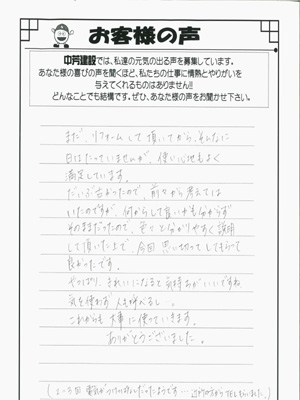 お客様の声
中芳建設では、私達の元気の出る声を募集しています。
あなた様の喜びの声を聞くほど、私たちの仕事に情熱とやりがいを
与えてくれるものはありません!!
どんなことでも結構です。ぜひ、あなた様の声をお聞かせ下さい。
まだ、リフォームして頂いてから、そんなに
日はたっていませんが、使い心地もよく
満足しています。
だいぶ古かったので、前々から考えては
いたのですが、何からして良いかも分からず
そのままだったので、色々と分かりやすく説明
して頂いた上で、今回思い切ってしてもらって
良かったです。
やっぱり、きれいになると気持ちがいいですね。
気を使わず人も呼べるし。
これからも大事に使っていきます。
ありがとうございました。